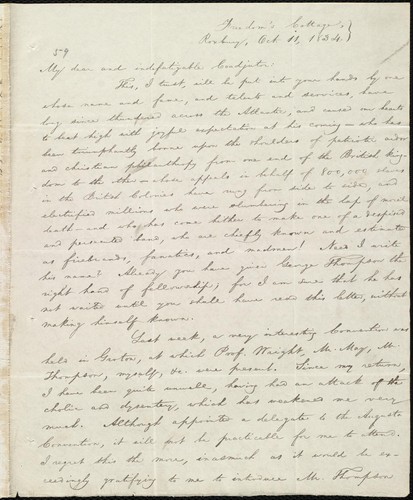 Freedom's Cottage,
Roxbury, Oct. 11, 1834.
59
My dear and indefatigable Coadjutor:
This, I trust, will be put into your hands by one
whose name and fame, and talents and services, have
long since transpired across the Atlantic, and caused our hearts
to beat high with joyful expectation at his coming—who has
been triumphantly borne upon the shoulders of patriotic ardor
and christian philanthropy from one end of the British king-
dom to the other—whose appeals in behalf of 800,000 slaves
in the British Colonies have rung from side to side, and
electrified millions who were slumbering in the lap of moral
death—and who has come hither to make one of a despised
and persecuted band, who are chiefly known and estimated
as firebrands, fanatics, and madmen! Need I write
his name? Already you have given George Thompson the
right hand of fellowship; for I am sure that he has
not waited until you shall have read this letter, without
making himself known.
Last week, a very interesting Convention was
held in Groton, at which Prof. Wright, Mr. May, Mr.
Thompson, myself, &c. were present. Since my return,
I have been quite unwell, having had an attack of the
cholic and dysentery, which has weakened me very
much. Although appointed a delegate to the Augusta
Convention, it will not be practicable for me to attend.
I regret this the more, inasmuch as it would be ex-
ceedingly gratifying to me to introduce Mr. Thompson